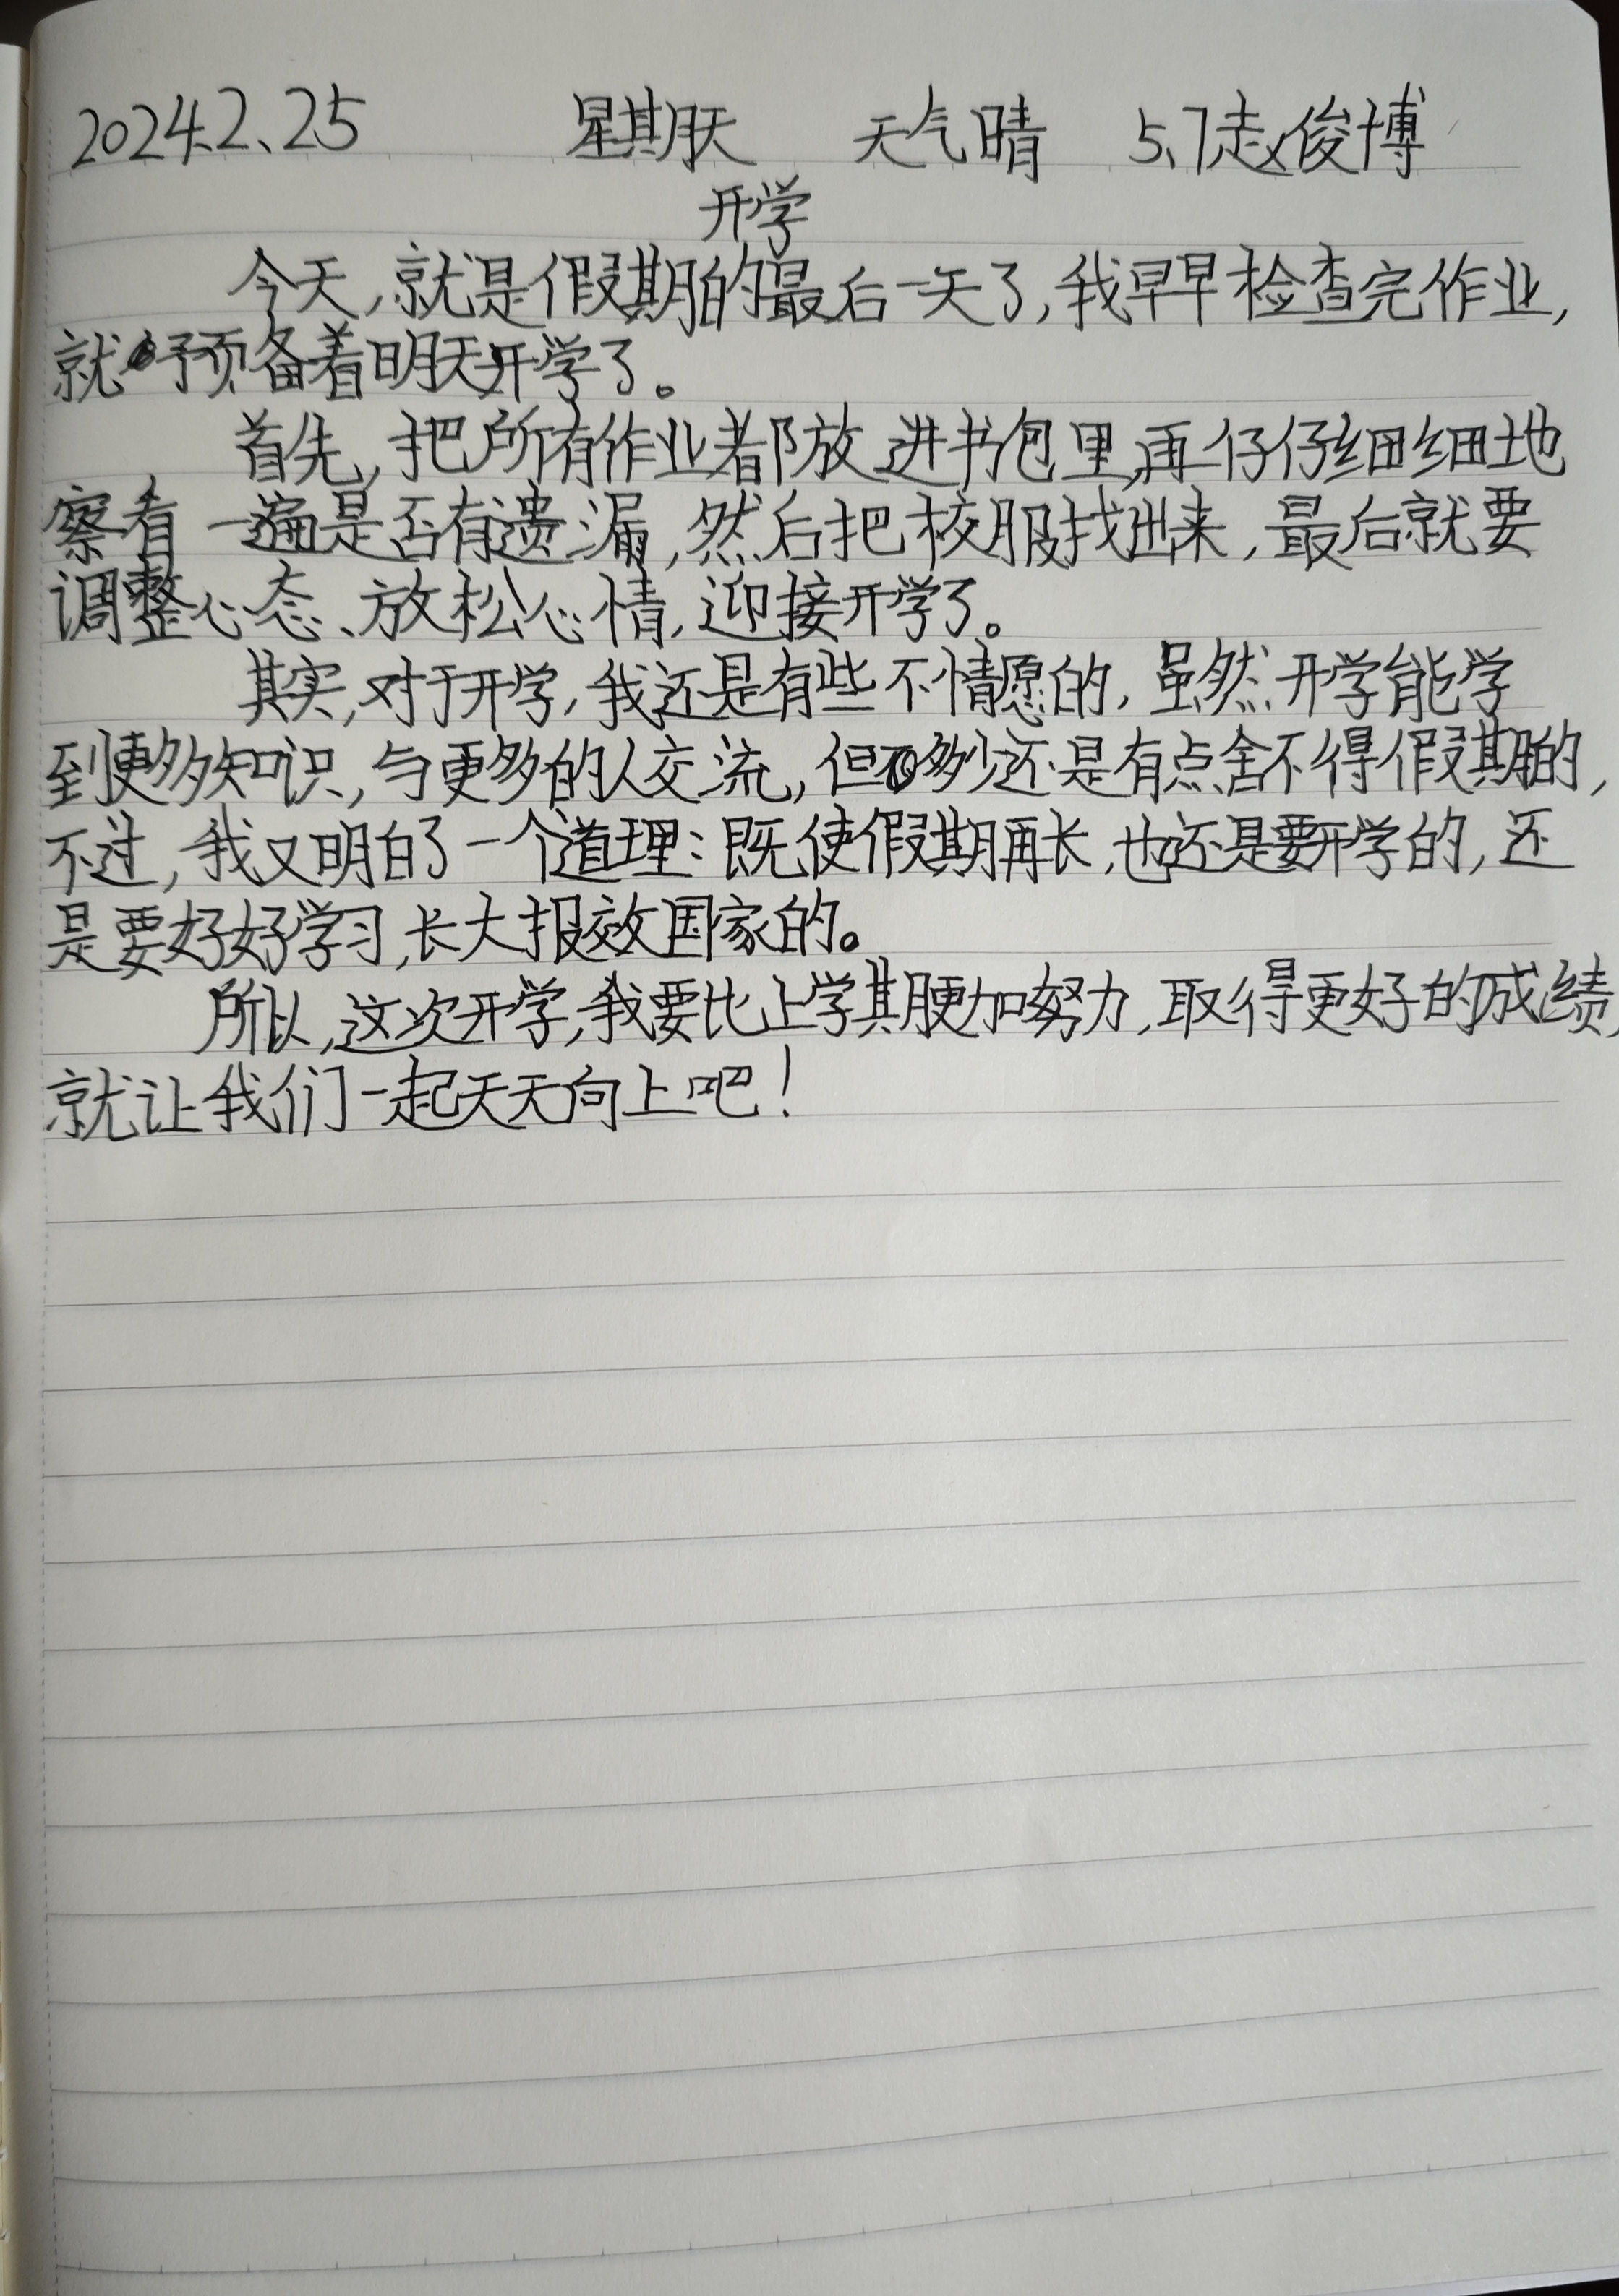 2024.2.25 星期天 天气晴 5.7赵俊博
开学
今天,就是假期的最后一天了,我早早检查完作业,
就予预备着明天开学了。
首先,把所有作业都放进书包里,再仔仔细细地
察看一遍是否有遗漏,然后把校服找出来,最后就要
调整心态、放松心情,迎接开学了。
其实,对于开学,我还是有些不情愿的,虽然开学能学
到更多知识,与更多的人交流,但多少还是有点舍不得假期的,
不过,我又明白了一个道理:既使假期再长,也还是要开学的,还
是要好好学习,长大报效国家的。
所以,这次开学,我要比上学期更加努力,取得更好的成绩,
就让我们一起天天向上吧!